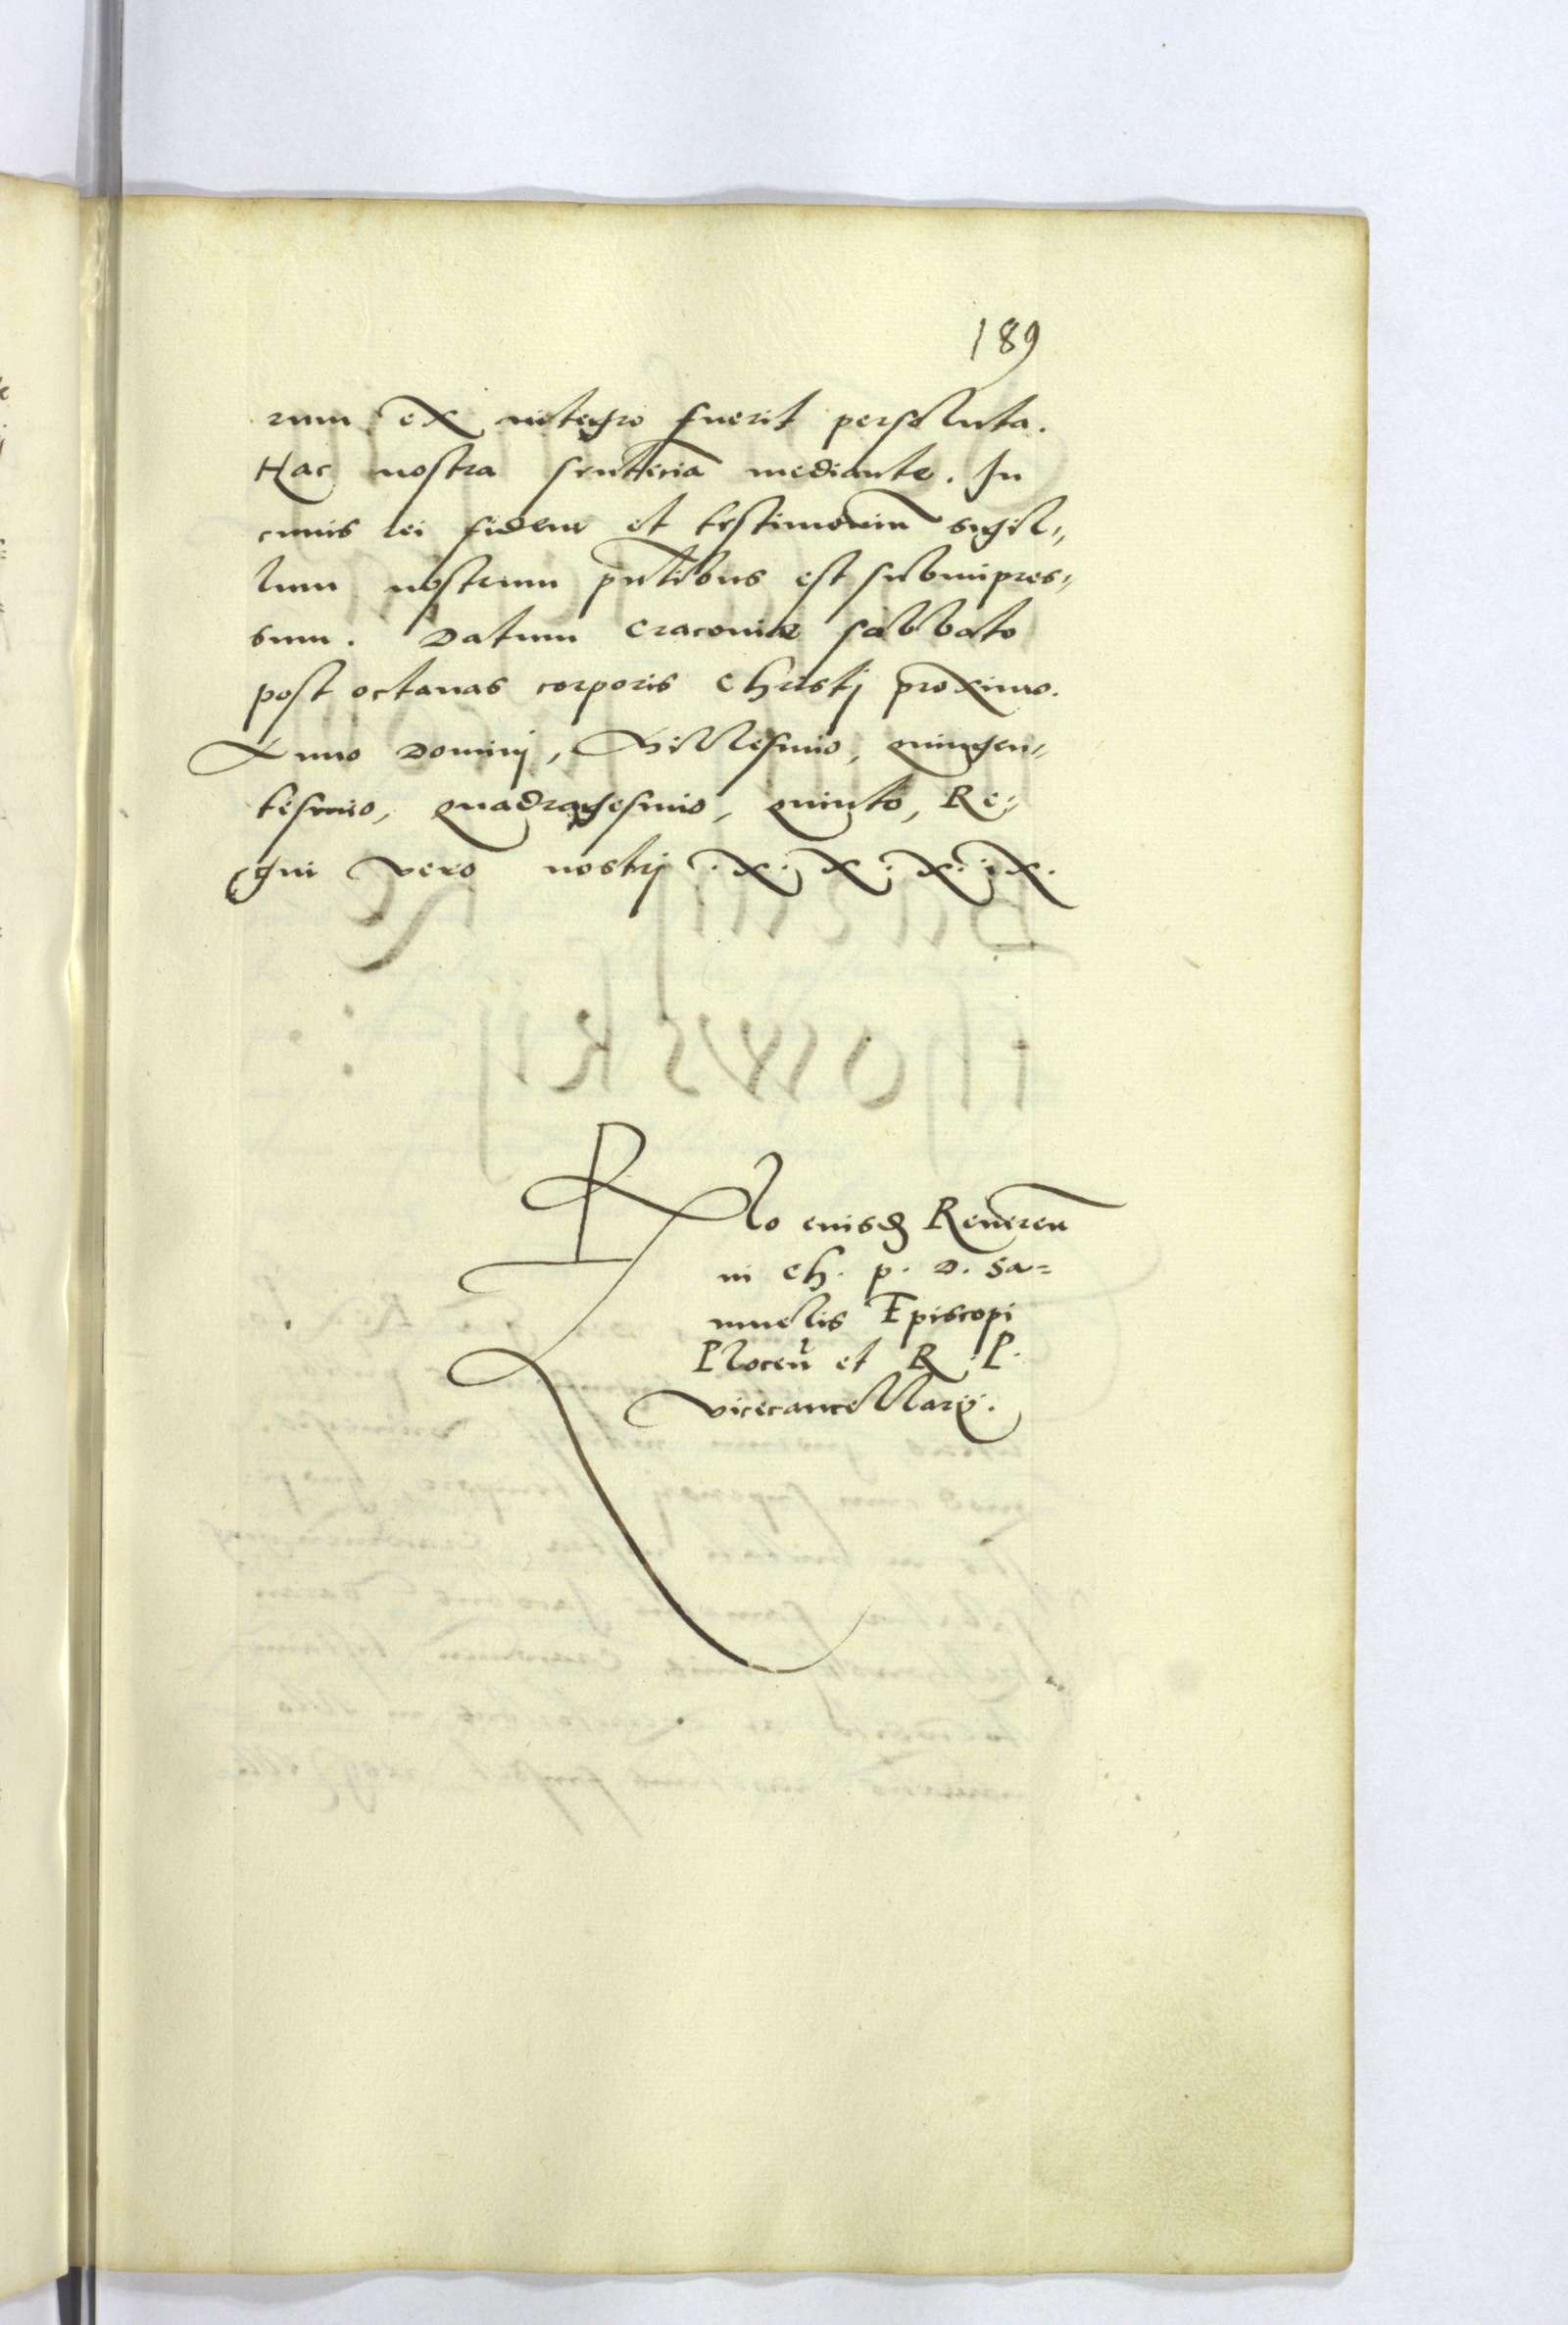 189
rum ex integro fuerit persoluta.
Hac nostra sententia mediante. In
cuius rei fidem et testimoniū sigil„
lum nostrum pn̄tibus est subimpres„
sum. Datum Cracoviæ sabbato
post octauas corporis Christj proximo.
Anno Dominj, Millesimo, quingen„
tesimo, quadragesimo, quinto, Re„
gni vero nostrj . X. X. X. iX.
Rlo eiusdē Reueren̄
in Ch. p. D. Sa=
muelis Episcopi
Plocen̄ et R. P.
vicecancellarij.